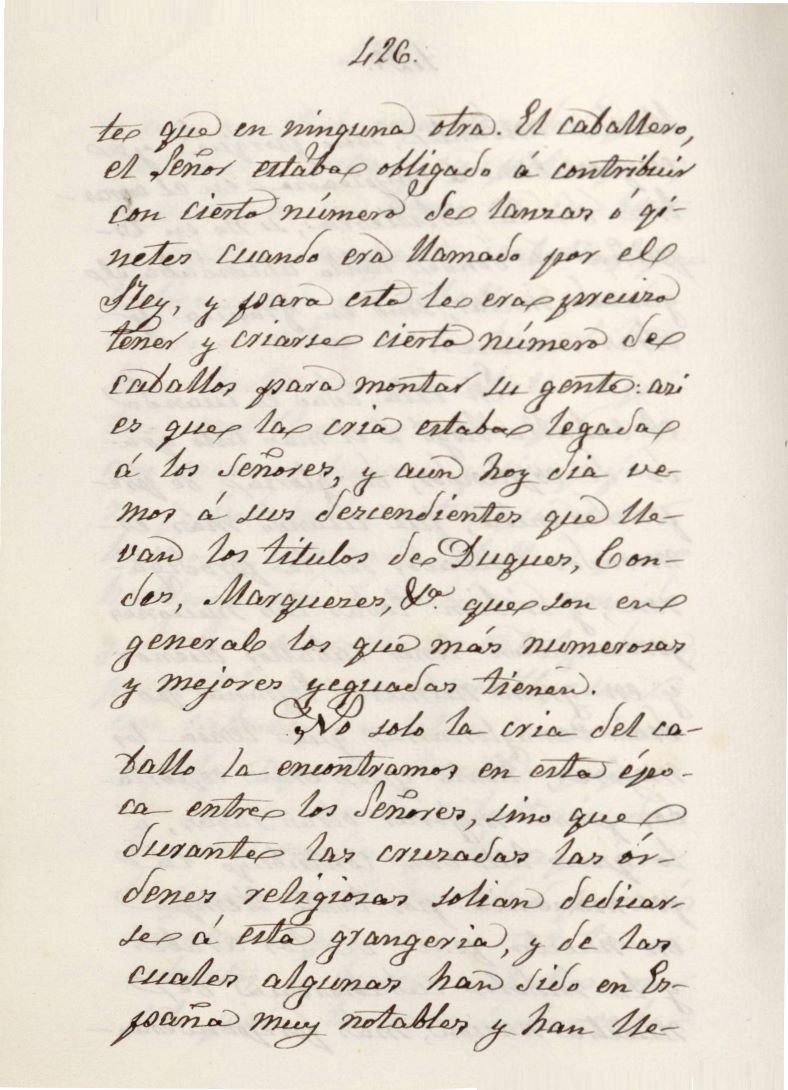 426.
te que en ninguna otra. El caballero,
el Señor estaba obligado á contribuir
con cierto número de lanzas ó gi-
netes cuando era llamado por el
Rey, y para esto le era preciso
tener y criarse cierto número de
caballos para montar su gente: asi
es que la cria estaba legada
á los Señores, y aun hoy dia ve-
mos á sus descendientes que lle-
van los titulos de Duques, Con-
des, Marqueses, &a. que son en
general los que más numerosas
y mejores yeguadas tienen.
No solo la cria del ca-
ballo la encontramos en esta épo-
ca entre los Señores, sino que
durante las cruzadas las ór-
denes religiosas solian dedicar-
se á esta grangeria, y de las
cuales algunas han sido en Es-
paña muy notables y han lle-